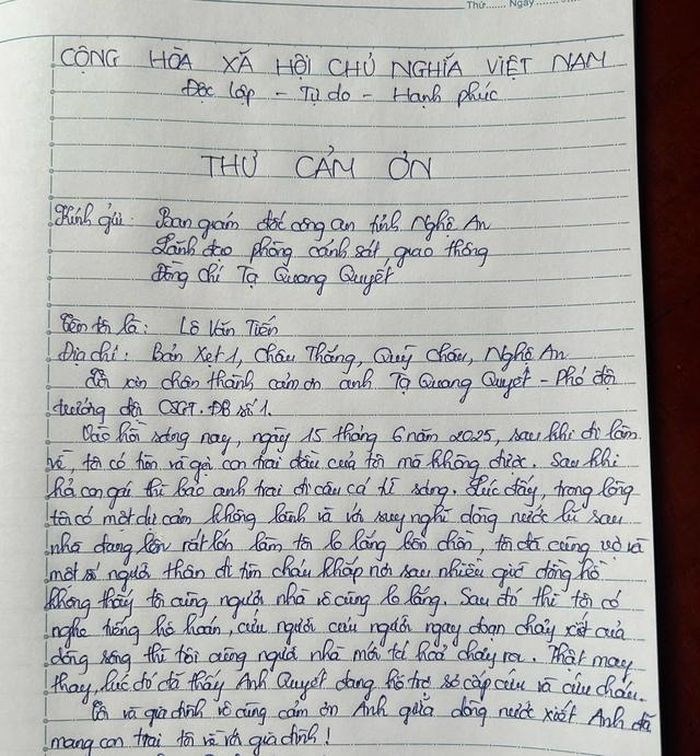 Thứ....... Ngày.......
CỘNG HÒA XÃ HỘI CHỦ NGHĨA VIỆT NAM
Độc lập - Tự do - Hạnh phúc
THƯ CẢM ƠN
Kính gửi: Ban giám đốc công an tỉnh Nghệ An
Lãnh đạo phòng cảnh sát giao thông
Đồng chí Tạ Quang Quyết
Tên tôi là: Lô Văn Tiến
Địa chỉ: Bản Xẹt 1, Châu Thắng, Quỳ Châu, Nghệ An
Tôi xin chân thành cảm ơn anh Tạ Quang Quyết - Phó đội
trưởng đội CSGT.ĐB số 1.
Vào hồi sáng nay, ngày 15 tháng 6 năm 2025, sau khi đi làm
về, tôi có tìm và gọi con trai đầu của tôi mà không được. Sau khi
hỏi con gái thì bảo anh trai đi câu cá từ sáng. Lúc đấy, trong lòng
tôi có một dự cảm không lành và với suy nghĩ dòng nước lũ sau
nhà đang lên rất lớn làm tôi lo lắng bồn chồn, tôi đã cùng vợ và
một số người thân đi tìm cháu khắp nơi sau nhiều giờ đồng hồ
không thấy tôi cùng người nhà vô cùng lo lắng. Sau đó thì tôi có
nghe tiếng hô hoán, cứu người cứu người ngay đoạn chảy xiết của
dòng sông thì tôi cùng người nhà mới tá hoả chạy ra. Thật may
thay, lúc đó đã thấy Anh Quyết đang hỗ trợ sơ cấp cứu và cứu cháu.
Tôi và gia đình vô cùng cảm ơn Anh giữa dòng nước xiết Anh đã
mang con trai tôi về với gia đình!